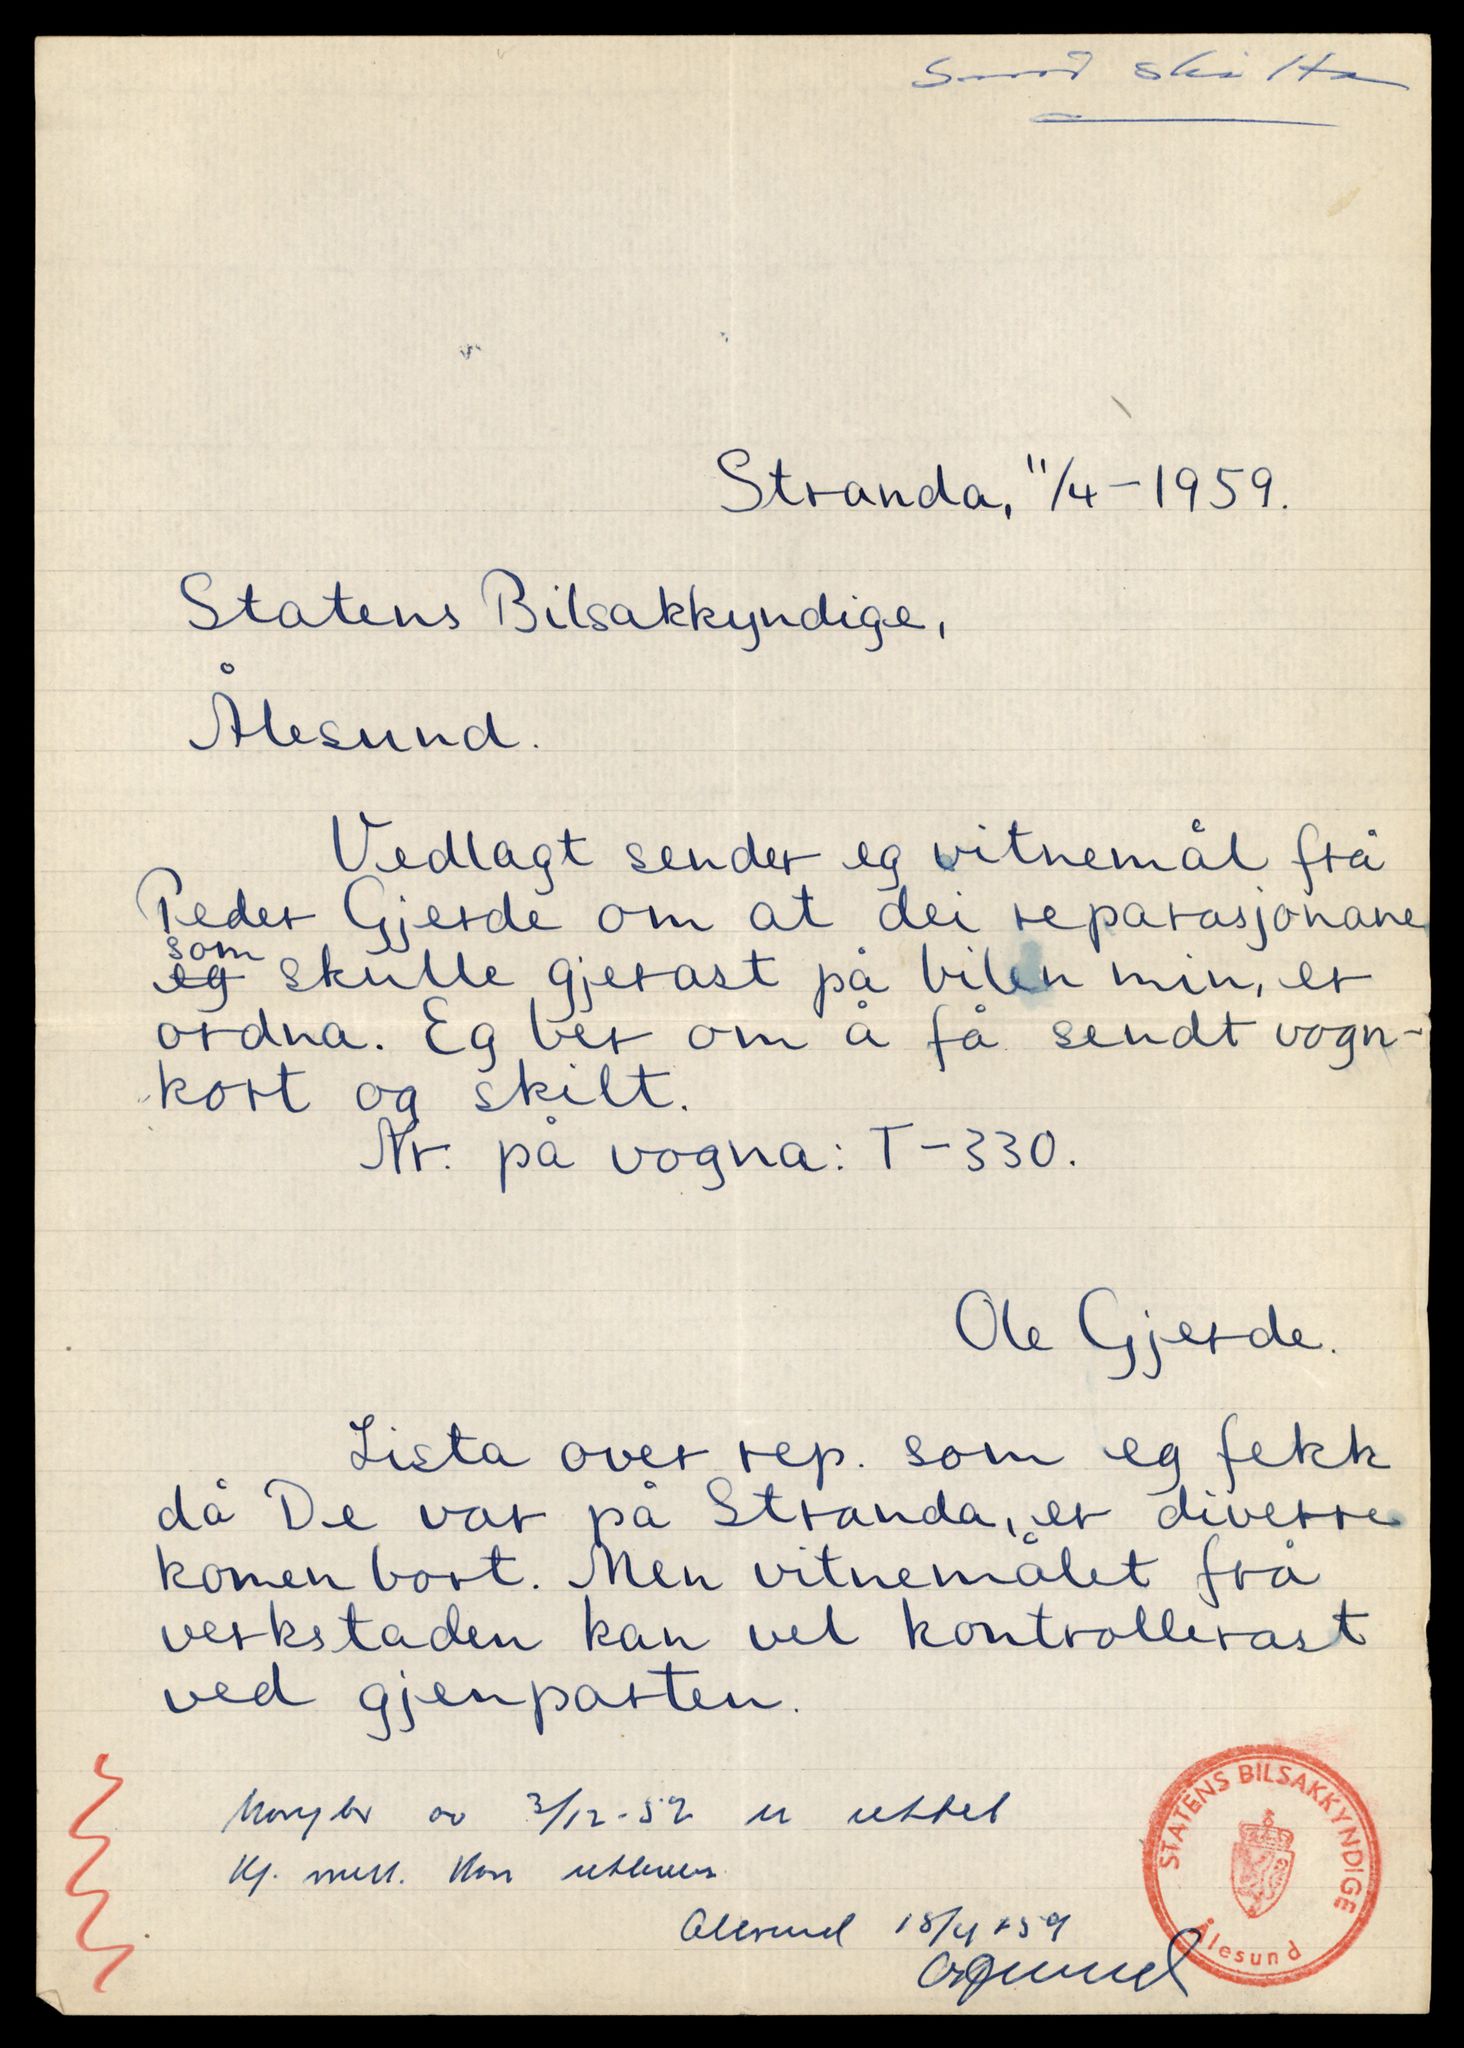 skilta
Stranda, 11/4-1959.
Statens Bilsakkyndige,
Ålesund.
Vedlagt sender eg vitnemål frå
Peder Gjerde om at dei reparasjonane
som
eg skulle gjerast på bilen min, er
ordna. Eg ber om å få sendt vogn-
kort og skilt.
Nr. på vogna: T-330.
Ole Gjerde.
Lista over rep. som eg fekk
då De var på Stranda, er diverre
komen bort. Men vitnemålet frå
verkstaden kan vel kontrollerast
ved gjenparten.
3/12-59
Kan
Ålesund 18/4-59
STATENS BILSAKKYNDIGE
Ålesund